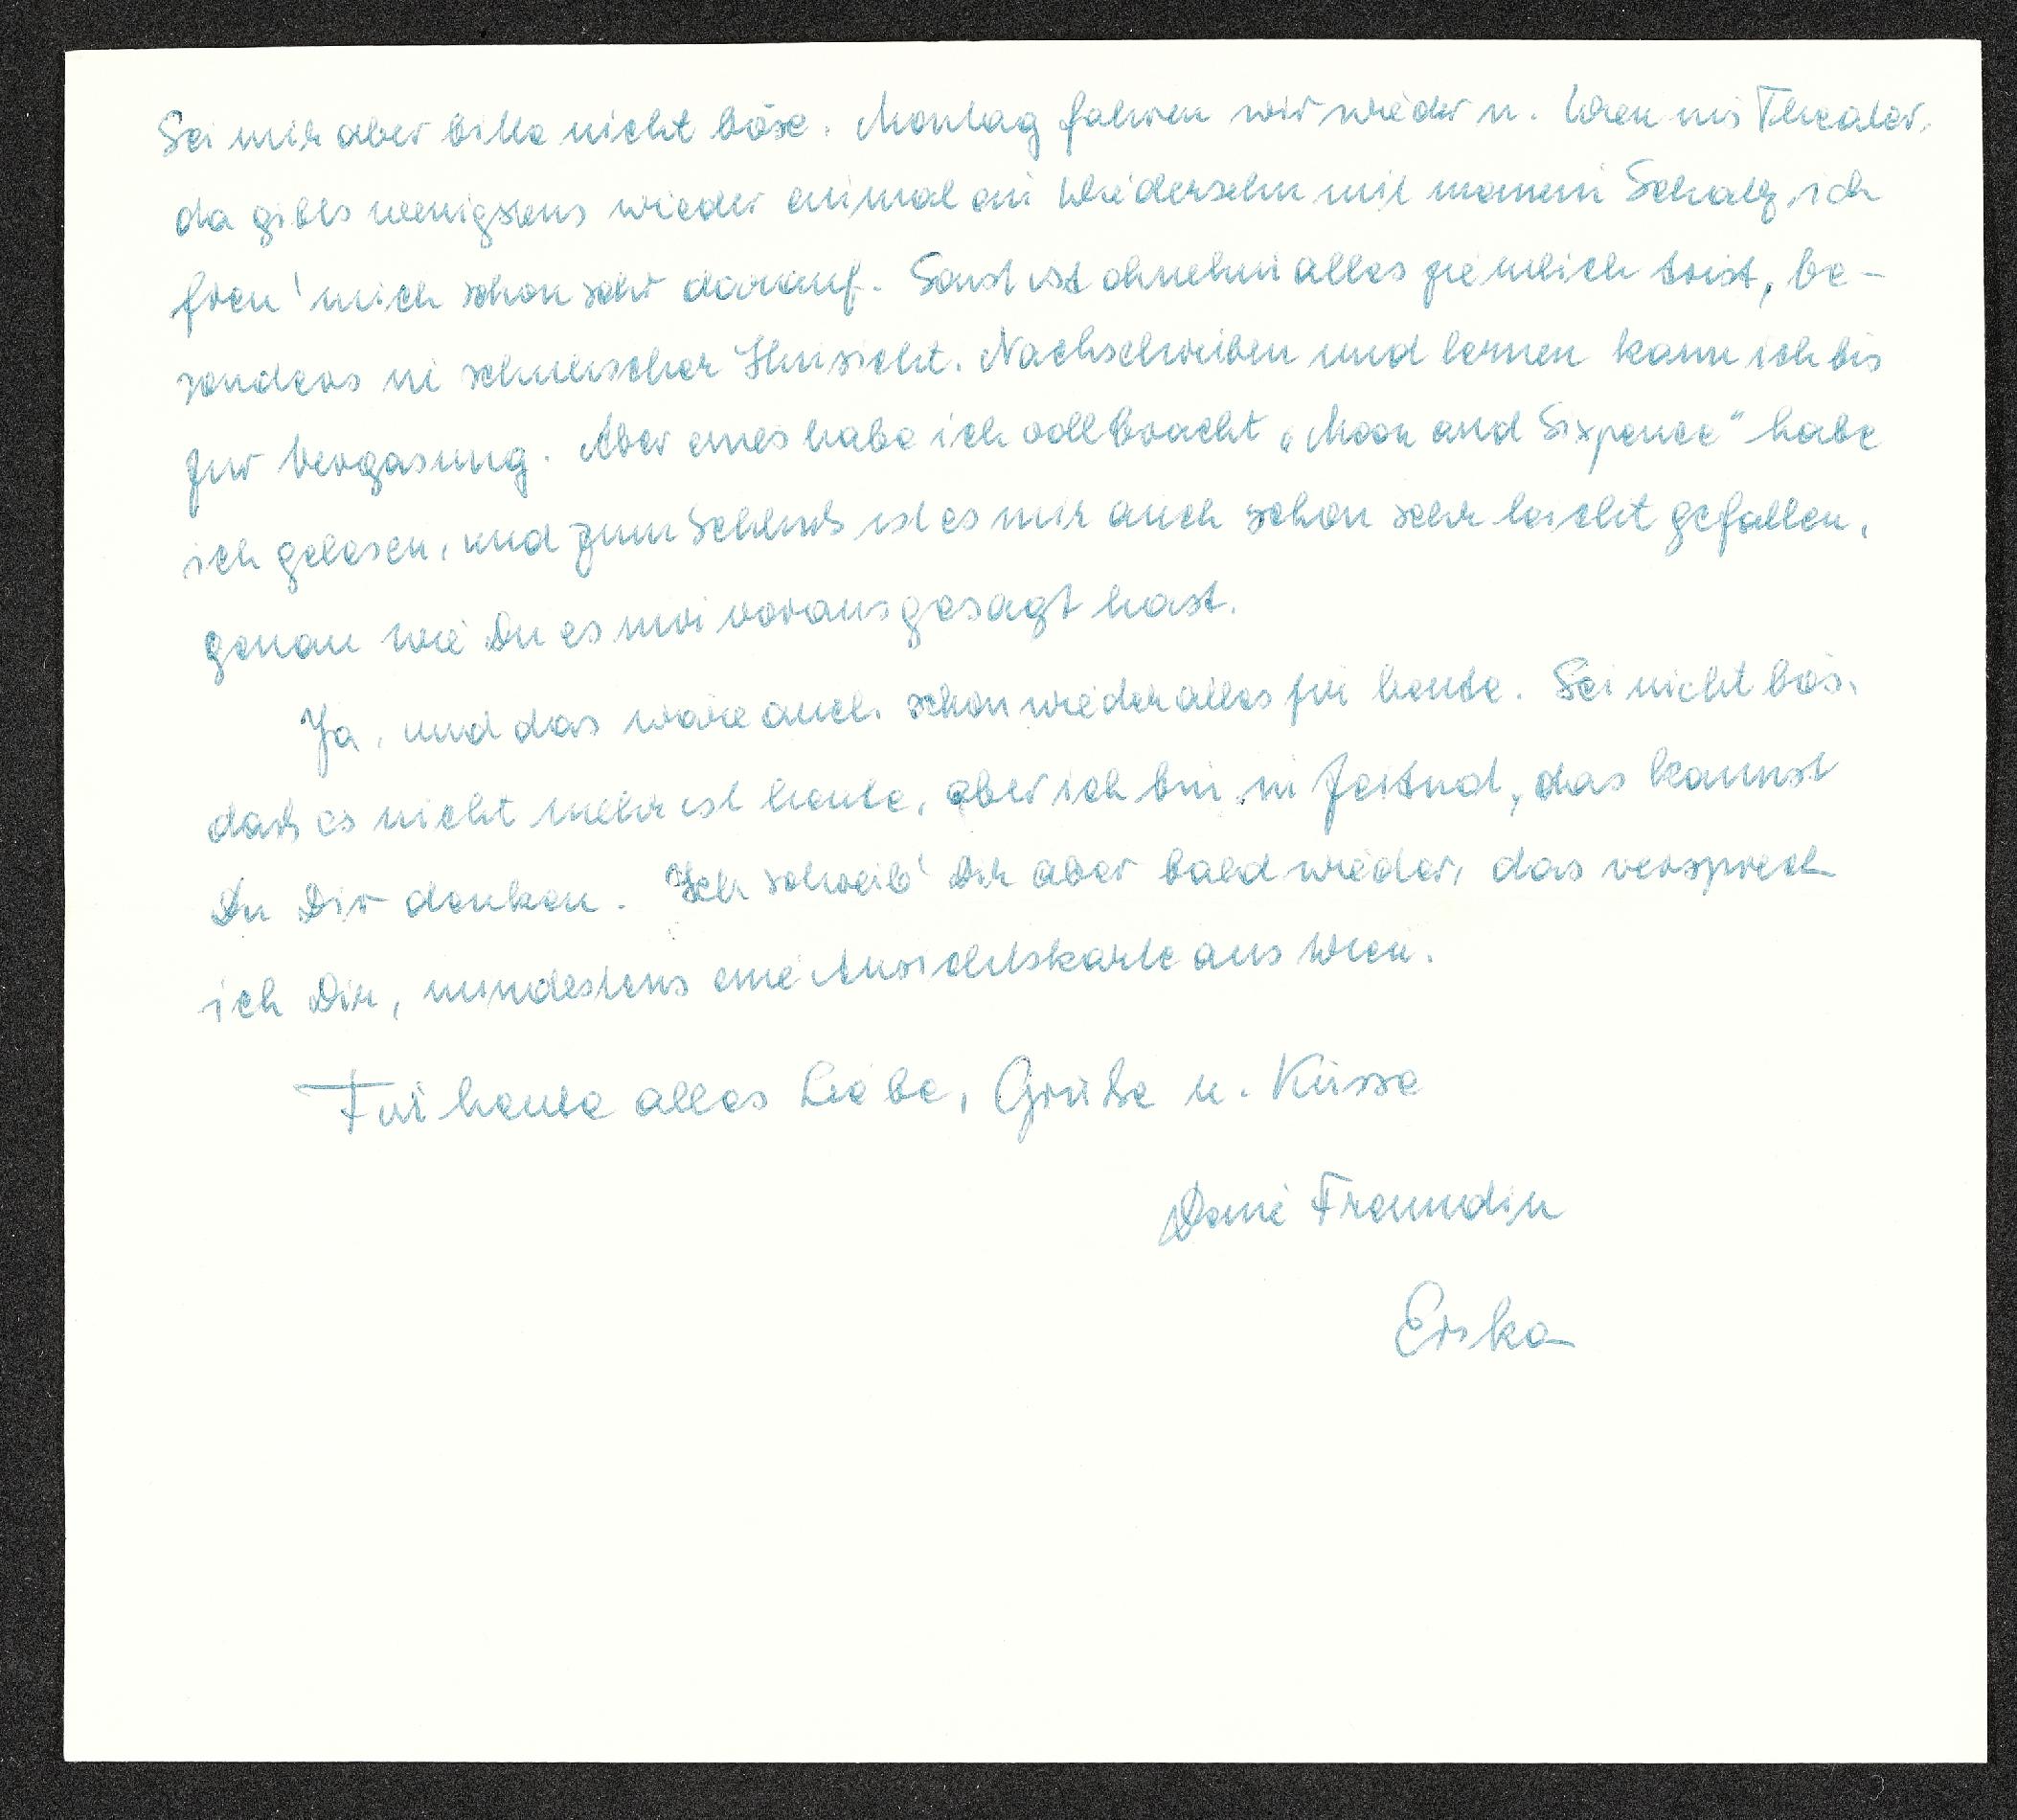 Sei mir aber bitte nicht böse. Montag fahren wir wieder n. Wien ins Theater,
da gibts wenigstens wieder einmal ein Wiedersehn mit meinem Schatz, ich
freu' mich schon sehr darauf. Sonst ist ohnehin alles ziemlich trist, be-
sonders in schulischer Hinsicht. Nachschreiben und lernen kann ich bis
zur Vergasung. Aber eines habe ich vollbracht „Moon and Sixpence" habe
ich gelesen, und zum Schluß ist es mir auch schon sehr leicht gefallen,
genau wie Du es mir vorausgesagt hast.
Ja, und das wäre auch schon wieder alles für heute. Sei nicht bös,
daß es nicht mehr ist heute, aber ich bin in Zeitnot, das kannst
Du Dir denken. Ich schreib' Dir aber bald wieder, das versprech
ich Dir, mindestens eine Ansichtskarte aus Wien.
Für heute alles Liebe, Grüße u. Küsse
Deine Freundin
Erika